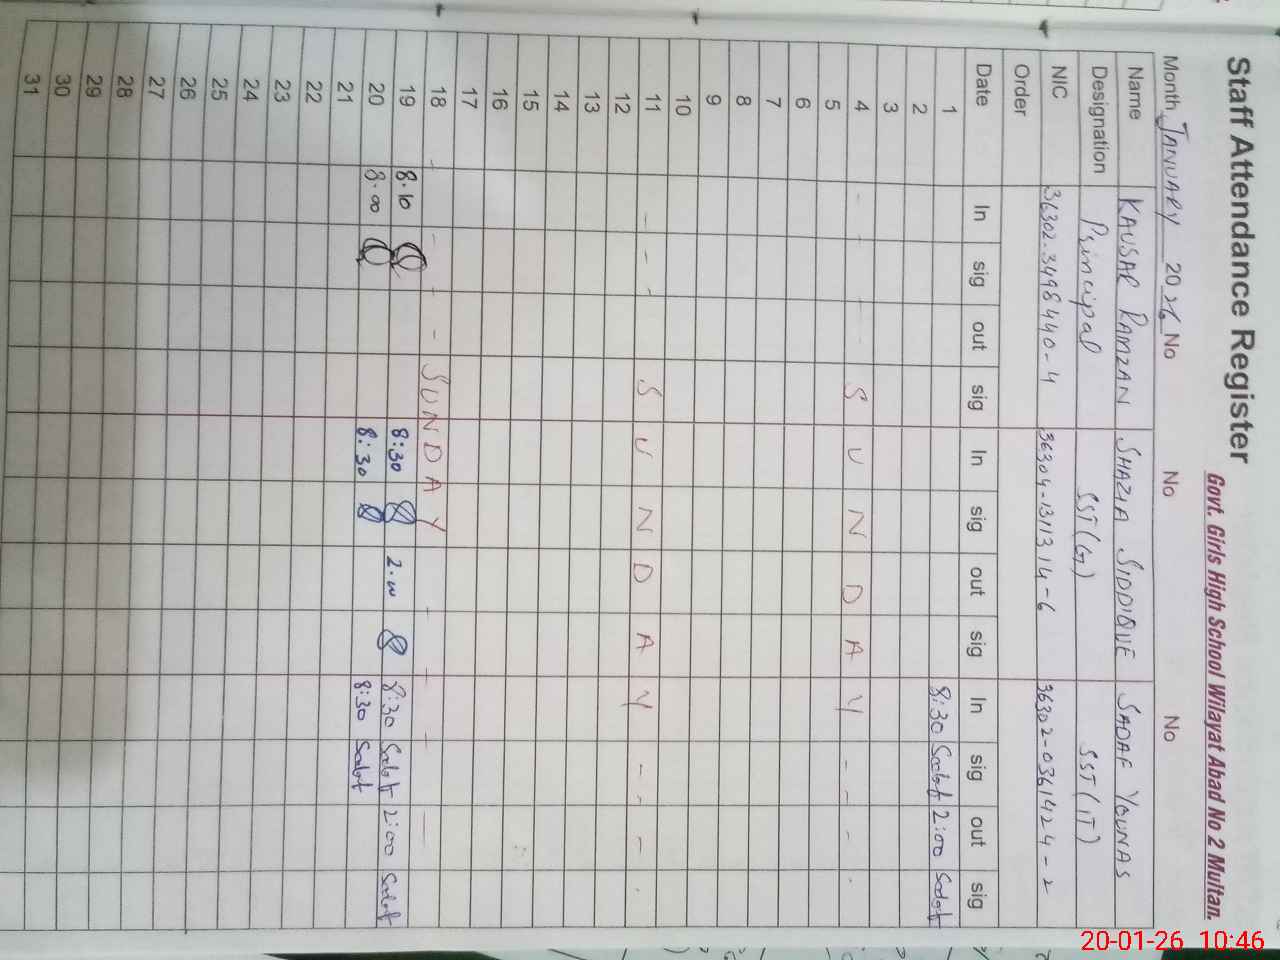 Staff Attendance Register Govt. Girls High School Wilayat Abad No 2 Multan.
Month JANUARY 20 26 No No No
Name KAUSAR RAMZAN SHAZIA SIDDIQUE SADAF YOUNAS
Designation Principal SST(G) SST(IT)
NIC 36302-3498440-4 36304-1311314-6 36302-0361424-2
Order
Date In sig out sig In sig out sig In sig out sig
1 8:30 Sadaf 2:00 Sadaf
2
3
4 - - - SUNDAY - - - .
5
6
7
8
9
10
11 - - - SUNDAY - - - .
12
13
14
15
16
17
18 - - - - SUNDAY - - - -
19 8.10 8:30 2.00 8:30 Sadaf 2:00 Sadaf
20 8.00 8:30 8:30 Sadaf
21
22
23
24
25
26
27
28
29
30
31
20-01-26 10:46